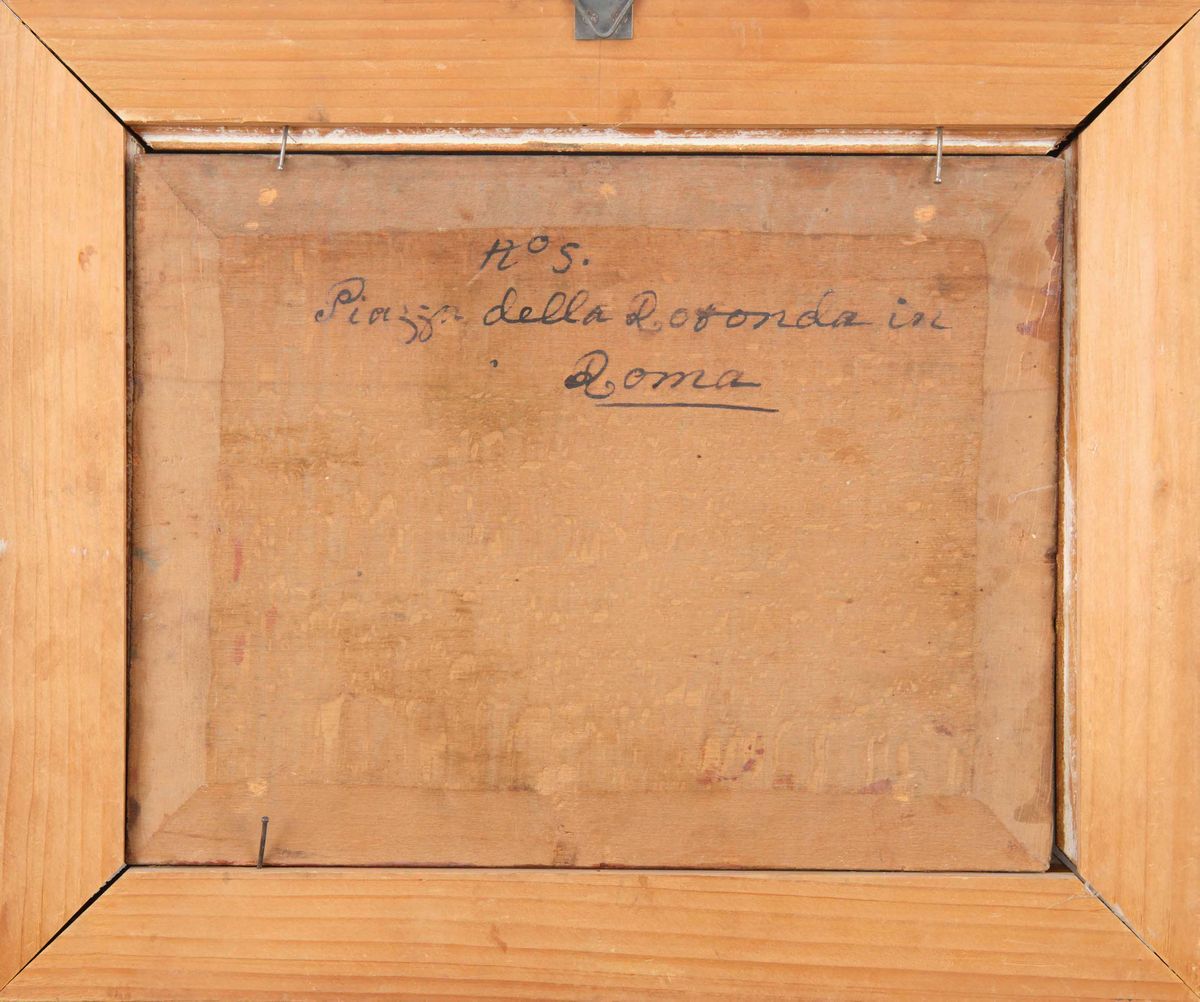 No 5.
Piazza della Rotonda in
Roma